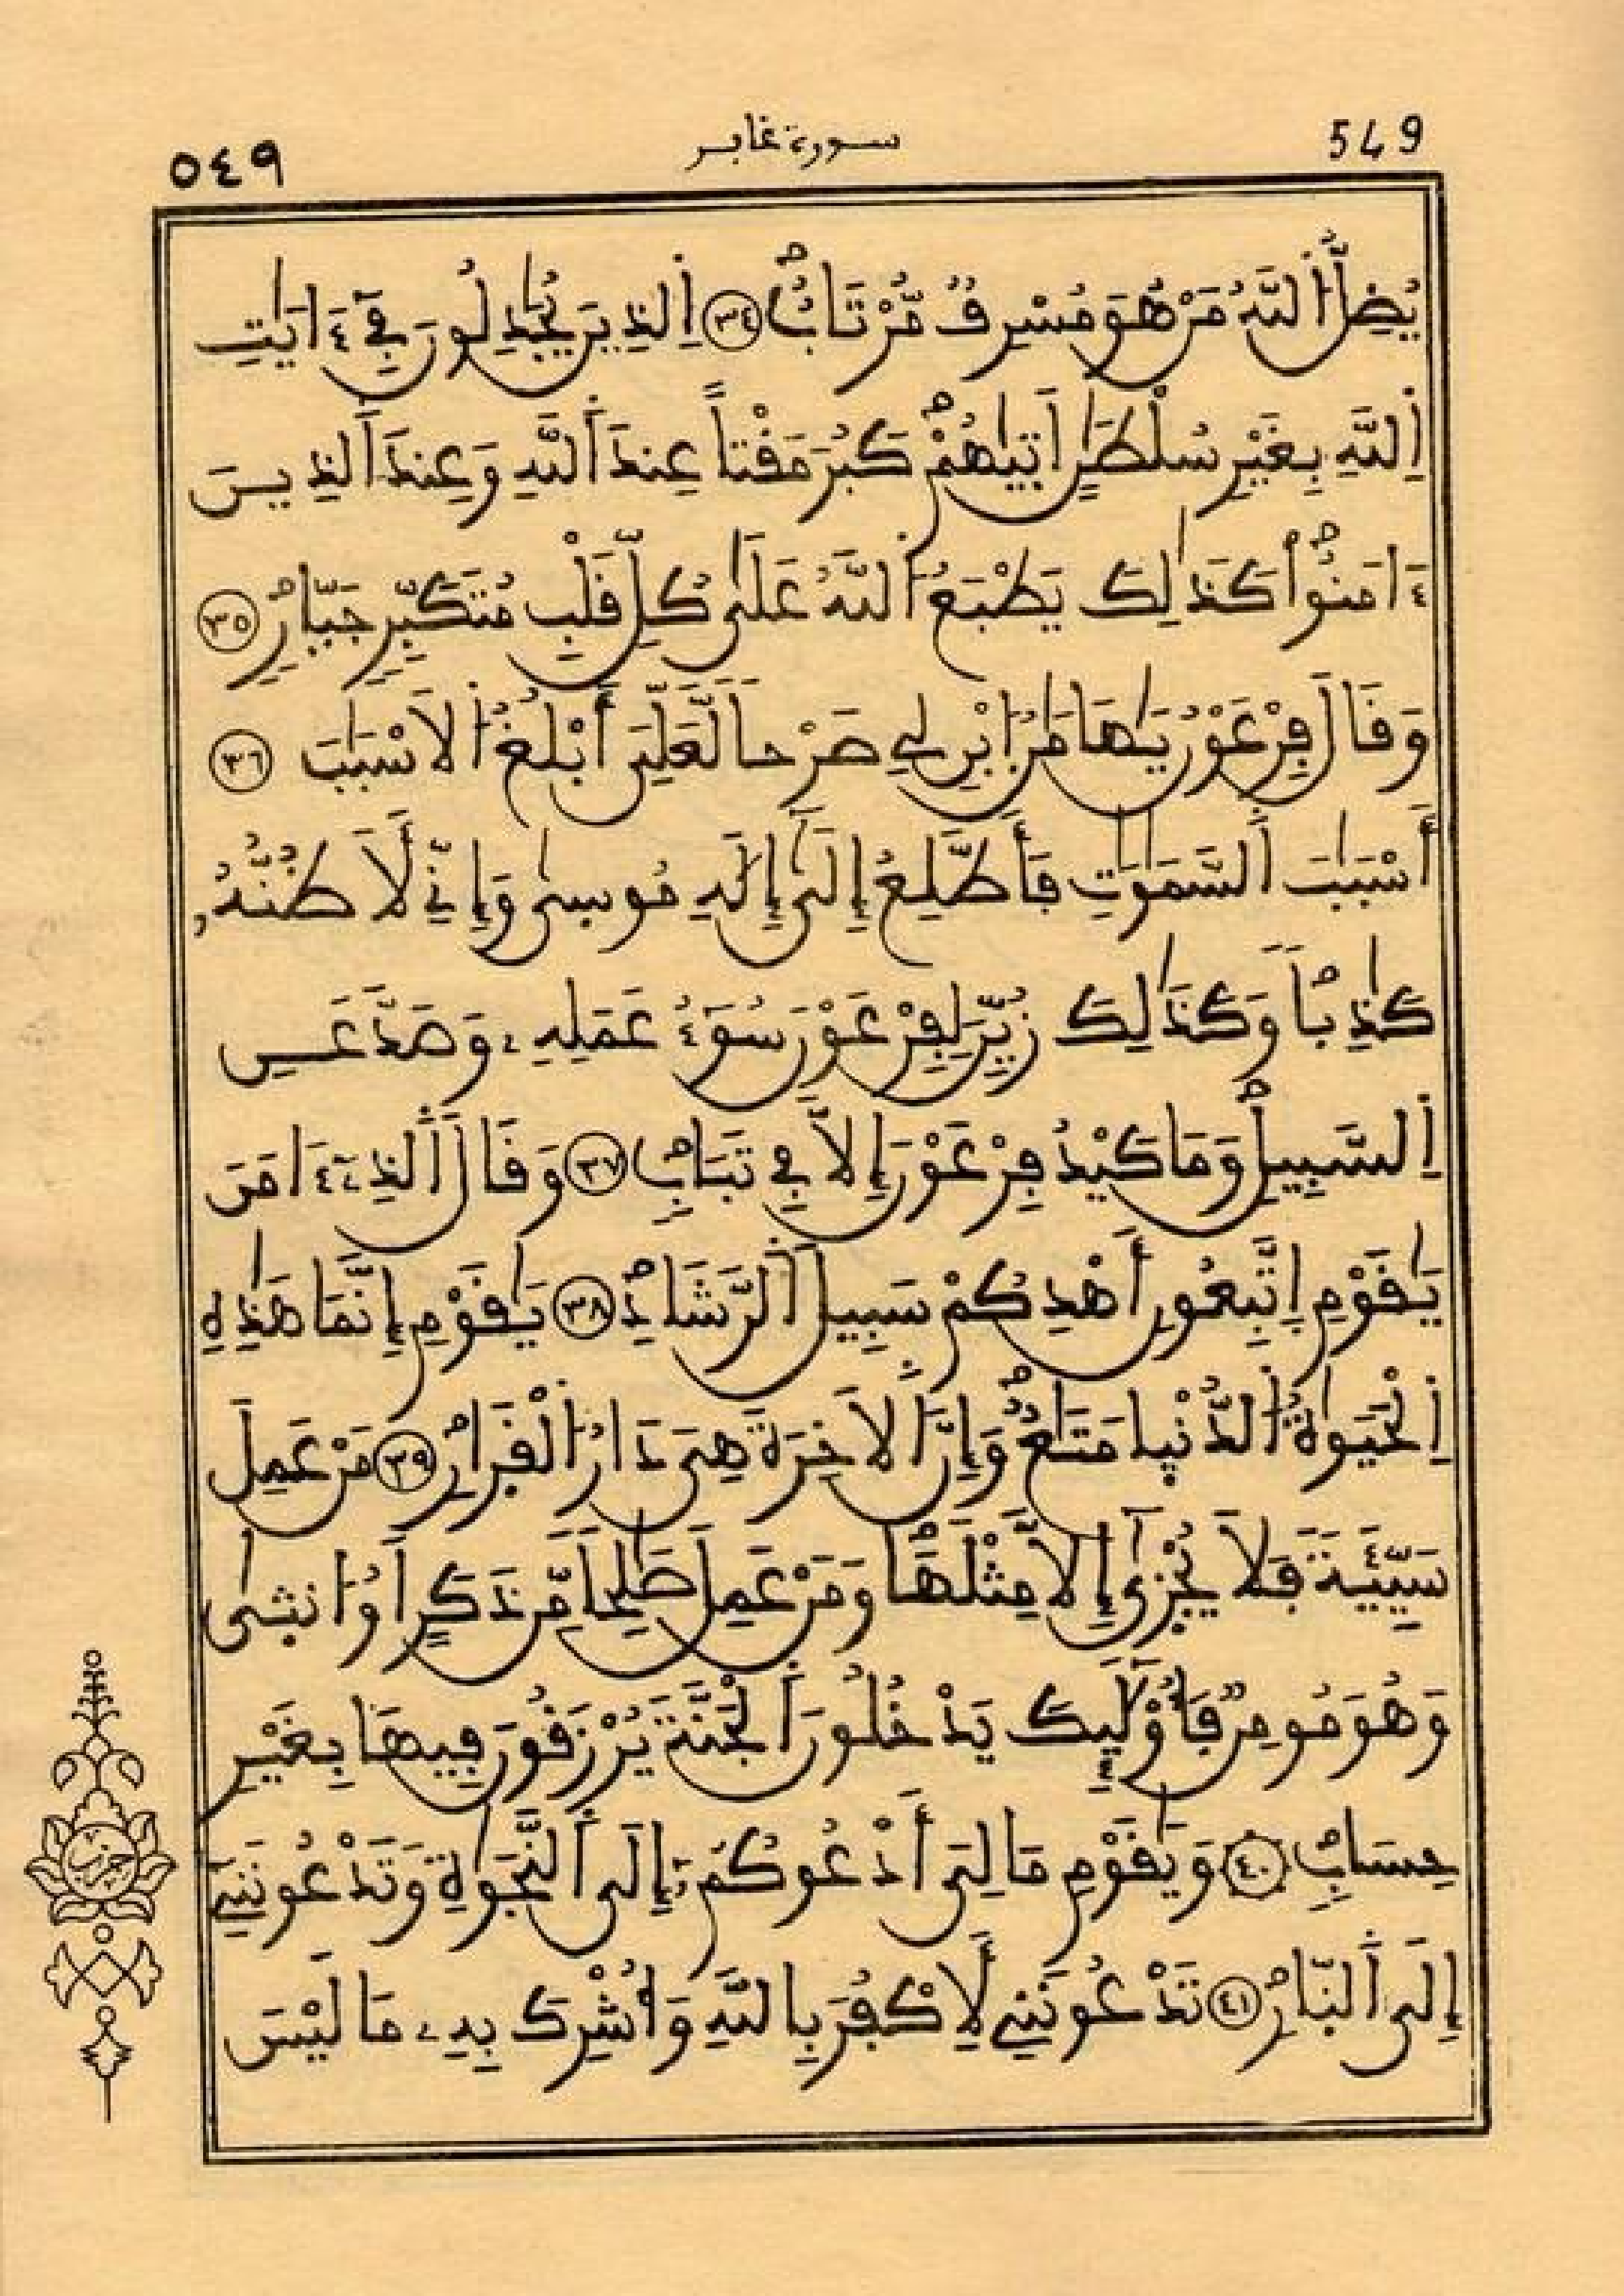 549 سورة غافر ٥٤٩
يُضِلُّ اُللَّهُ مَنْ هُوَ مُسْرِفٌ مُّرْتَابٌ ٣٤ اِلذِينَ يُجَٰدِلُونَ فِےٓ ءَايَٰتِ
اِللَّهِ بِغَيْرِ سُلْطَٰنٍ اَتَيٰهُمْ كَبُرَ مَقْتاً عِندَ اَللَّهِ وَعِندَ اَلذِينَ
ءَامَنُواْ كَذَٰلِكَ يَطْبَعُ اُللَّهُ عَلَىٰ كُلِّ قَلْبِ مُتَكَبِّرٖ جَبَّارٖ ٣٥
وَقَالَ فِرْعَوْنُ يَٰهَٰمَٰنُ اُ۪بْنِ لِے صَرْحاٗ لَّعَلِّيَ أَبْلُغُ اُلَاسْبَٰبَ ٣٦
أَسْبَٰبَ اَلسَّمَٰوَٰتِ فَأَطَّلِعُ إِلَىٰٓ إِلَٰهِ مُوسِىٰ وَإِنِّے لَأَظُنُّهُۥ
كَٰذِباٗ وَكَذَٰلِكَ زُيِّنَ لِفِرْعَوْنَ سُوٓءُ عَمَلِهِۦ وَصَدَّ عَنِ
اِلسَّبِيلِ وَمَا كَيْدُ فِرْعَوْنَ إِلَّا فِے تَبَابٖ ٣٧ وَقَالَ اَلذِےٓ ءَامَنَ
يَٰقَوْمِ اِتَّبِعُونِ أَهْدِكُمْ سَبِيلَ اَلرَّشَادِ ٣٨ يَٰقَوْمِ إِنَّمَا هَٰذِهِ
اِلْحَيَوٰةُ اُلدُّنْي۪ا مَتَٰعٌ وَإِنَّ اَلَاخِرَةَ هِيَ دَارُ اُلْقَر۪ارِ ٣٩ مَنْ عَمِلَ
سَيِّئَةٗ فَلَا يُجْزَىٰٓ إِلَّا مِثْلَهَا وَمَنْ عَمِلَ صَٰلِحاٗ مِّن ذَكَرٍ اَوُ ا۟نث۪ىٰ
وَهُوَ مُومِنٞ فَأُوْلَٰٓئِكَ يَدْخُلُونَ اَلْجَنَّةَ يُرْزَقُونَ فِيهَا بِغَيْرِ
حِسَابٖ ٤٠ وَيَٰقَوْمِ مَا لِيَ أَدْعُوكُمُۥٓ إِلَى اَلنَّجَوٰةِ وَتَدْعُونَنِےٓ
إِلَى اَلنّ۪ارِ ٤١ تَدْعُونَنِے لِأَكْفُرَ بِاللَّهِ وَأُشْرِكَ بِهِۦ مَا لَيْسَ
حزب